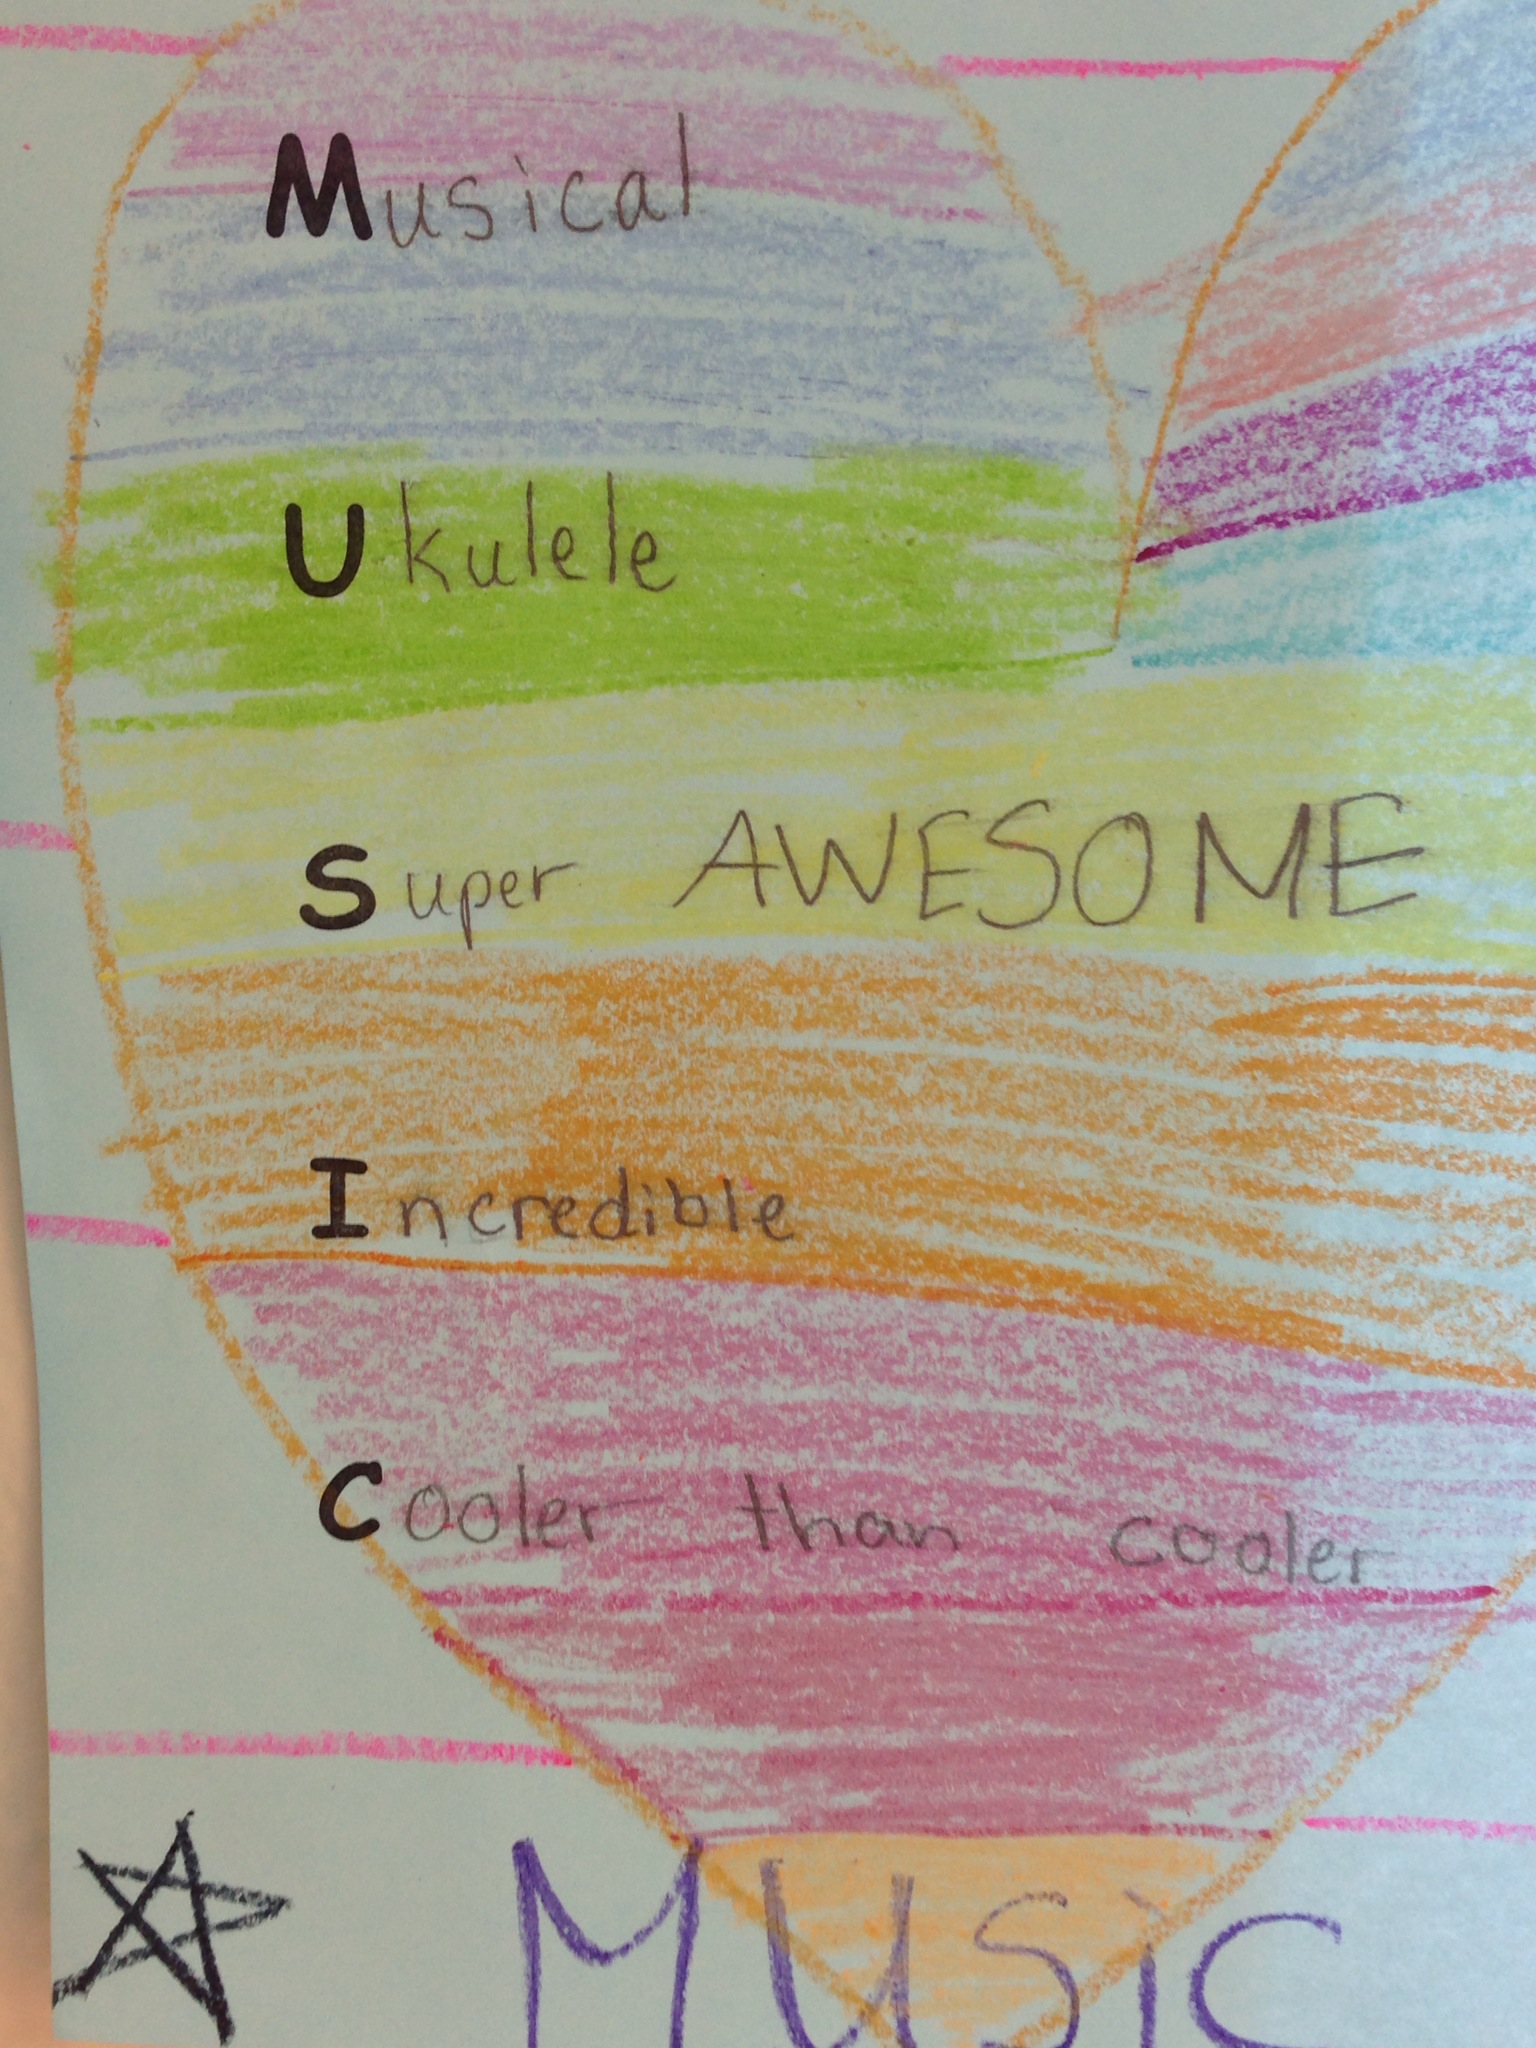 Musical
Ukulele
Super AWESOME
Incredible
Cooler than cooler
MUSiC